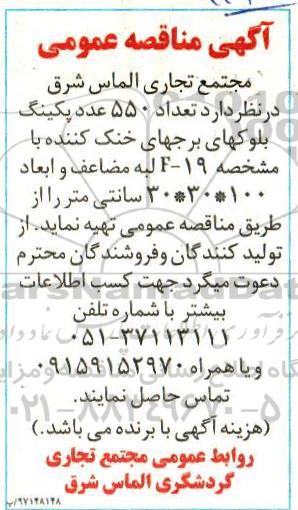 آگهی مناقصه عمومی
مجتمع تجاری الماس شرق
درنظردارد تعداد ۵۵۰ عدد پکینگ
بلوکهای برجهای خنک کننده با
مشخصه F-۱۹ لبه مضاعف و ابعاد
۱۰۰*۳۰*۳۰ سانتی متر را از
طریق مناقصه عمومی تهیه نماید. از
تولید کنندگان وفروشندگان محترم
دعوت میگرد جهت کسب اطلاعات
بیشتر با شماره تلفن
۰۵۱-۳۷۱۱۳۱۱۱
و یا همراه ۰۹۱۵۹۱۵۲۹۷۰
تماس حاصل نمایند.
(هزینه آگهی با برنده می باشد.)
روابط عمومی مجتمع تجاری
گردشگری الماس شرق
۹۷۱۴۸۱۴۸/پ